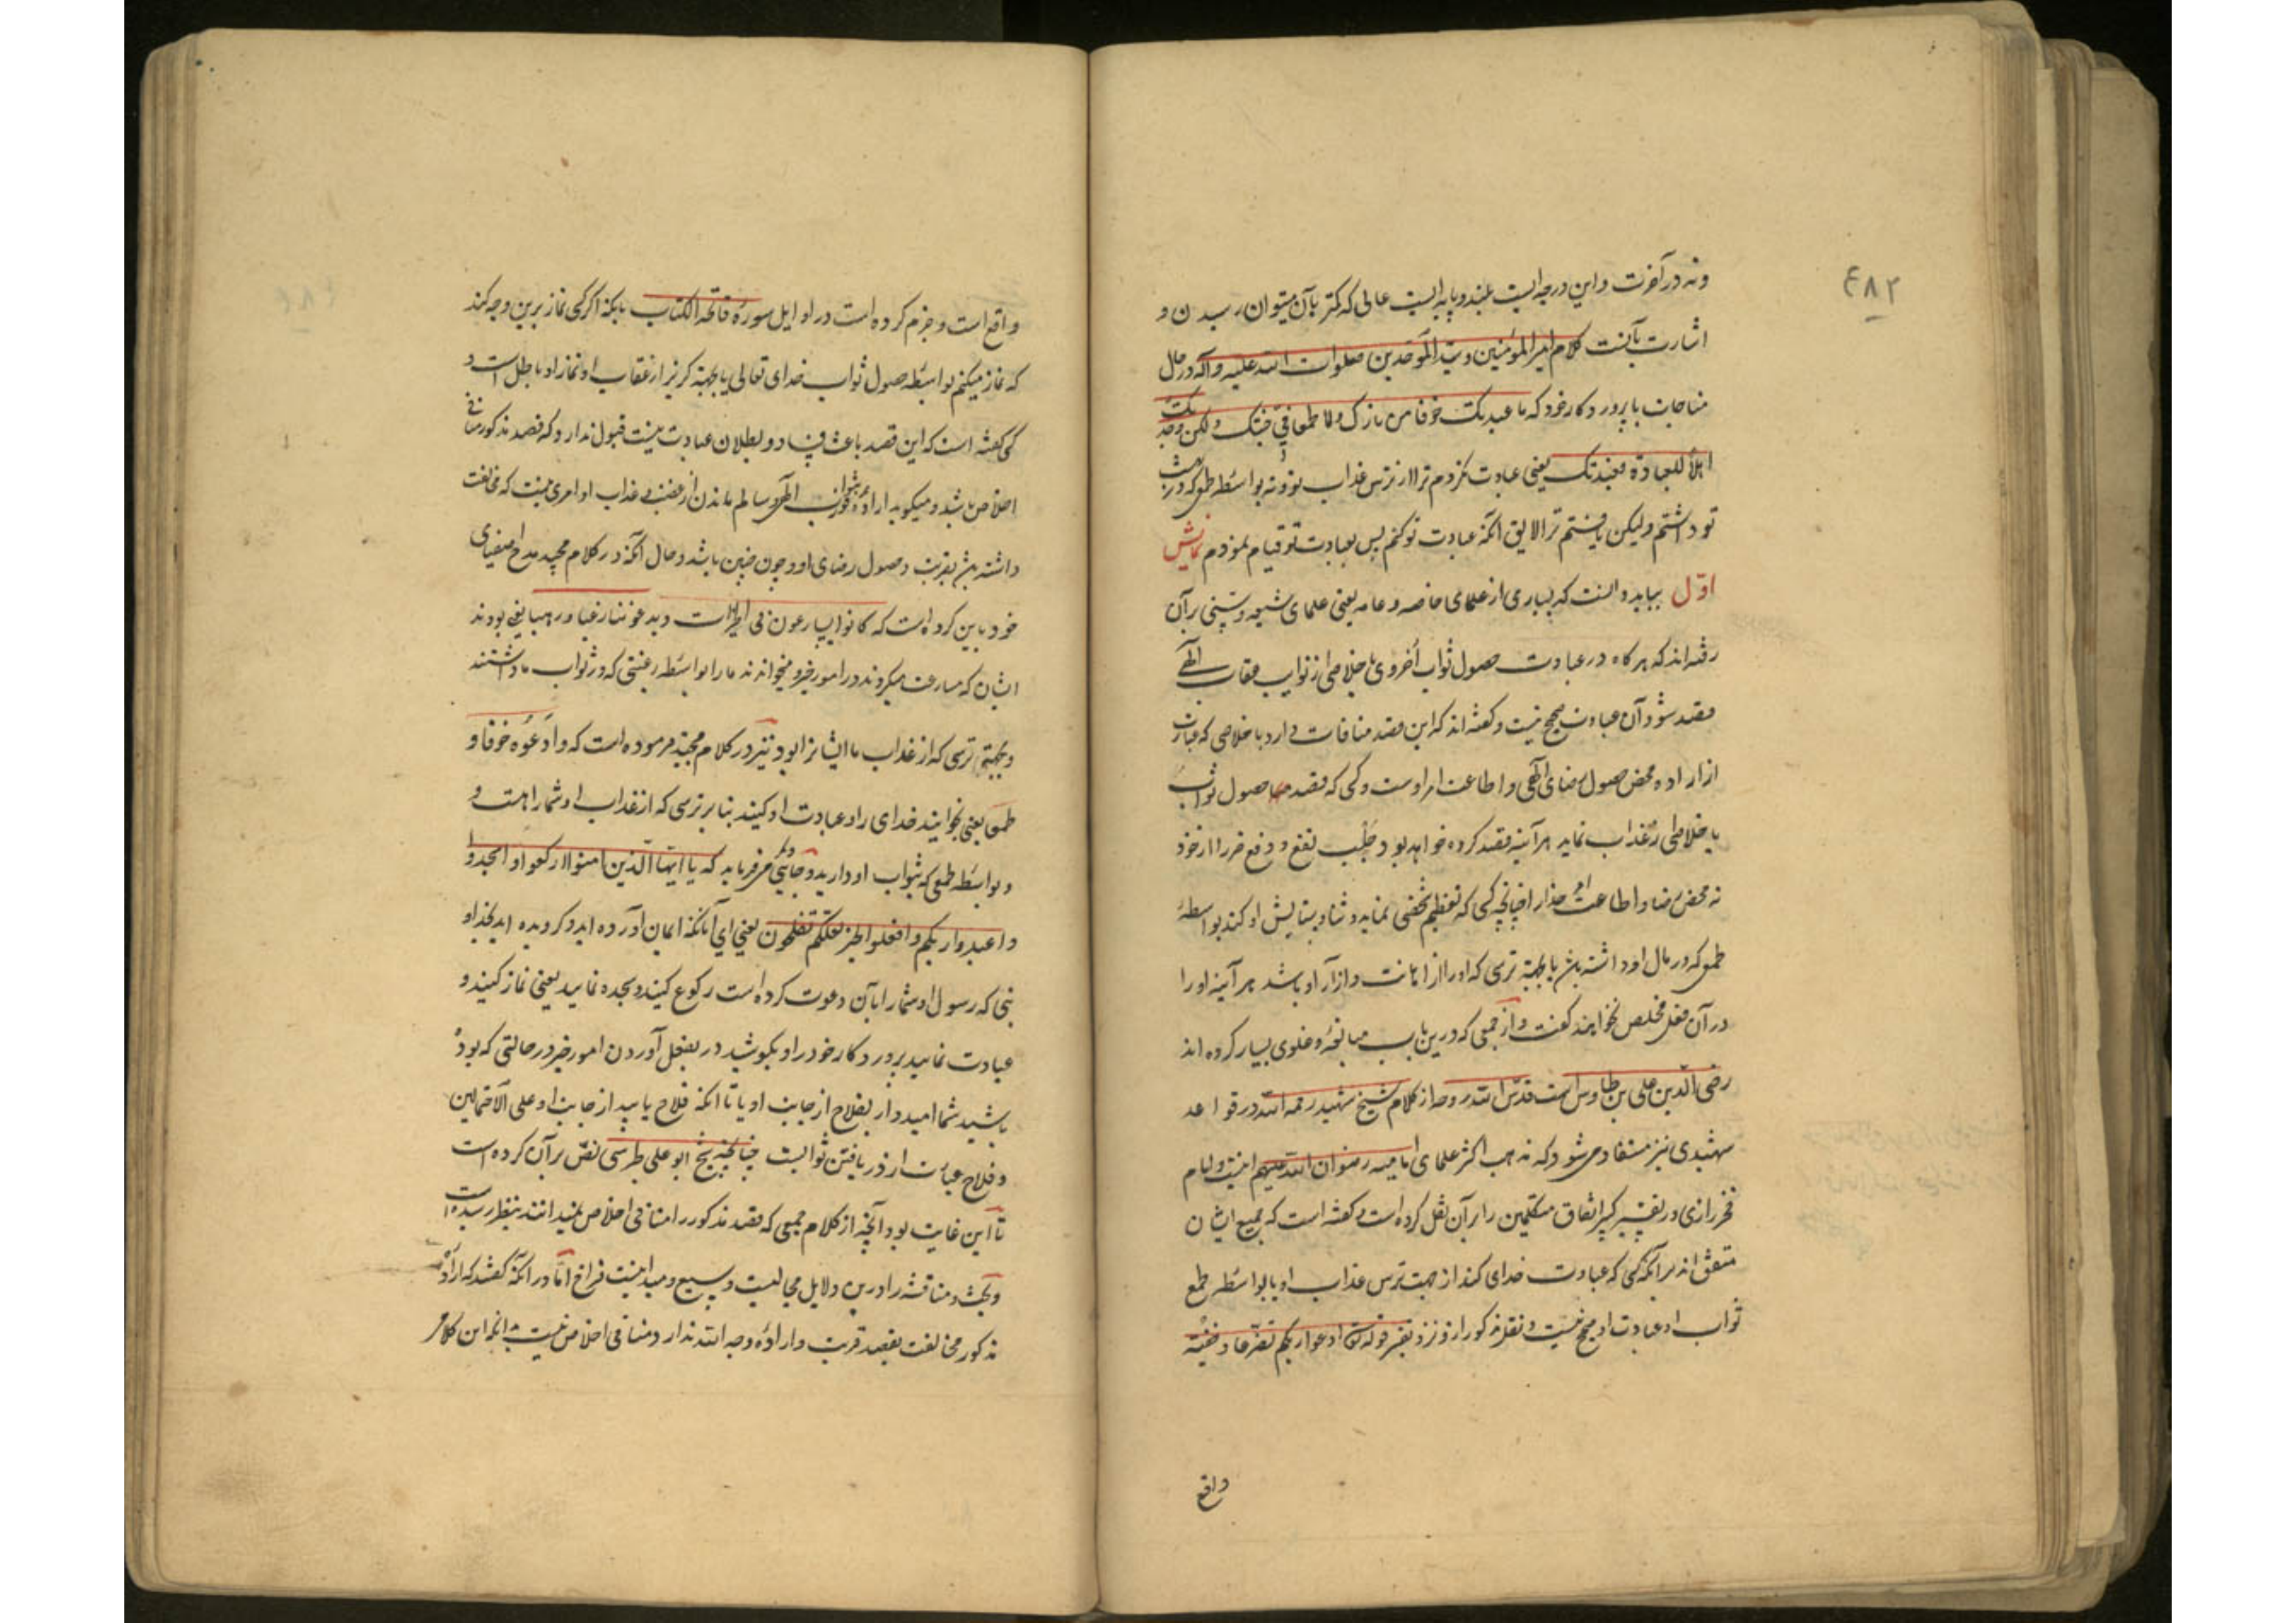 ۴۸۲
ونه در آخرت و این درجه ایست بلند و پایه ایست عالی که کمتر بآن میتوان رسیدن و
اشارت بآنست کلام امیر المؤمنین و سید الموحدین صلوات الله علیه و آله در حال
مناجات با پروردکار خود که ما عبدتک خوفا من نارک ولا طمعا فی جنتک ولکن وجدتک
اهلا للعبادة فعبدتک یعنی عبادت نکردم ترا از ترس عذاب تو و نه بواسطه طمعی که در بهشت
تو داشتم ولیکن یافتم ترا لایق آنکه عبادت تو کنم پس بعبادت تو قیام نمودم نمایش
اول بباید دانست که بسیاری از علمای خاصه و عامه یعنی علمای شیعه و سنی برآن
رفته اند که هر کاه در عبادت حصول ثواب اخروی یا خلاصی از عقاب الهی
قصد شود آن عبادت صحیح نیست و کفته اند که این قصد منافات دارد با خلاصی که عبارت
از اراده محض حصول رضای الهی و اطاعت امر اوست و کسی که قصد حصول ثواب
یا خلاصی از عذاب نماید هر آینه قصد کرده خواهد بود جلب نفع و دفع ضرر از خود
نه محض رضا و اطاعت امر خدا را چنانچه کسی که تعظیم شخصی نماید و ثنا و ستایش او کند بواسطهٔ
طمعی که در مال او داشته باشد یا بجهة ترسی که او را از اهانت و آزار او باشد هر آینه او را
در آن فعل مخلص نخواهند کفت و از جمعی که درین باب مبالغه و غلوی بسیار کرده اند
رضی الدین علی بن طاوس است قدس الله روحه از کلام شیخ شهید رحمه الله در قواعد
شهیدی نیز مستفاد می شود که مذهب اکثر علمای امامیه رضوان الله علیهم اینست و امام
فخر رازی در تفسیر کبیر اتفاق متکلمین را برآن نقل کرده است و کفته است که جمیع ایشان
متفق اند برآنکه کسی که عبادت خدای کند از جهت ترس عذاب او یا بواسطه طمع
ثواب او عبادت او صحیح نیست و نقل مذکور از و نزد تفسیر قوله تعالی ادعوا ربکم تضرعا و خفیة
واقع
واقع است و جزم کرده است در اوایل سورهٔ فاتحة الکتاب بآنکه اکر کسی نماز برین وجه کند
که نماز میکنم بواسطه حصول ثواب خدای تعالی یا بجهة کریز از عقاب او نماز او باطل است و
کسی کفته است که این قصد باعث فساد و بطلان عبادت نیست قبول ندارد که قصد مذکور منافی
اخلاص باشد و میکوید ارادهٔ ثواب الهی و سالم ماندن از غضب و عذاب او امری نیست که مخالفت
داشته باشد بقربت و حصول رضای او و چون چنین باشد و حال آنکه در کلام مجید مدح اصفیای
خود باین کرده است که کانوا یسارعون فی الخیرات و یدعوننا رغبا و رهبا یعنی بودند
ایشان که مسارعت میکردند در امور خیر و میخواندند ما را بواسطه رغبتی که در ثواب ما داشتند
و بجهتی ترسی که از عذاب ما ایشانرا بود و نیز در کلام مجید فرموده است که وادعوه خوفا و
طمعا یعنی بخوانید خدای را و عبادت او کنید بنا بر ترسی که از عذاب او شما را هست و
و بواسطه طمعی که بثواب او دارید و جایی دکر می فرماید که یا ایها الذین امنوا ارکعوا و اسجدوا
و اعبدوا ربکم و افعلوا الخیر لعلکم تفلحون یعنی ای آنانکه ایمان آورده اید و کرویده اید بخدا و
بنی که رسول او شما را بآن دعوت کرده است رکوع کنید و سجده نمایید یعنی نماز کنید و
عبادت نمایید پروردکار خود را و بکوشید در بفعل آوردن امور خیر در حالتی که بوده
باشید شما امیدوار بفلاح از جانب او یا تا آنکه فلاح یابید از جانب او علی الاحتمالین
و فلاح عبارت از دریافتن ثوابست چنانچه شیخ ابو علی طبرسی نص برآن کرده است
تا این غایت بود آنچه از کلام جمعی که قصد مذکور را منافی اخلاص نمیدانند بنظر رسیده است
و بحث و مناقشه را درین دلایل مجالیست وسیع و میدانیست فراخ اما در آنکه کفتند که ارادهٔ
مذکور مخالفت بقصد قربت و ارادهٔ وجه الله ندارد و منافی اخلاص نیست بدانکه این کلام